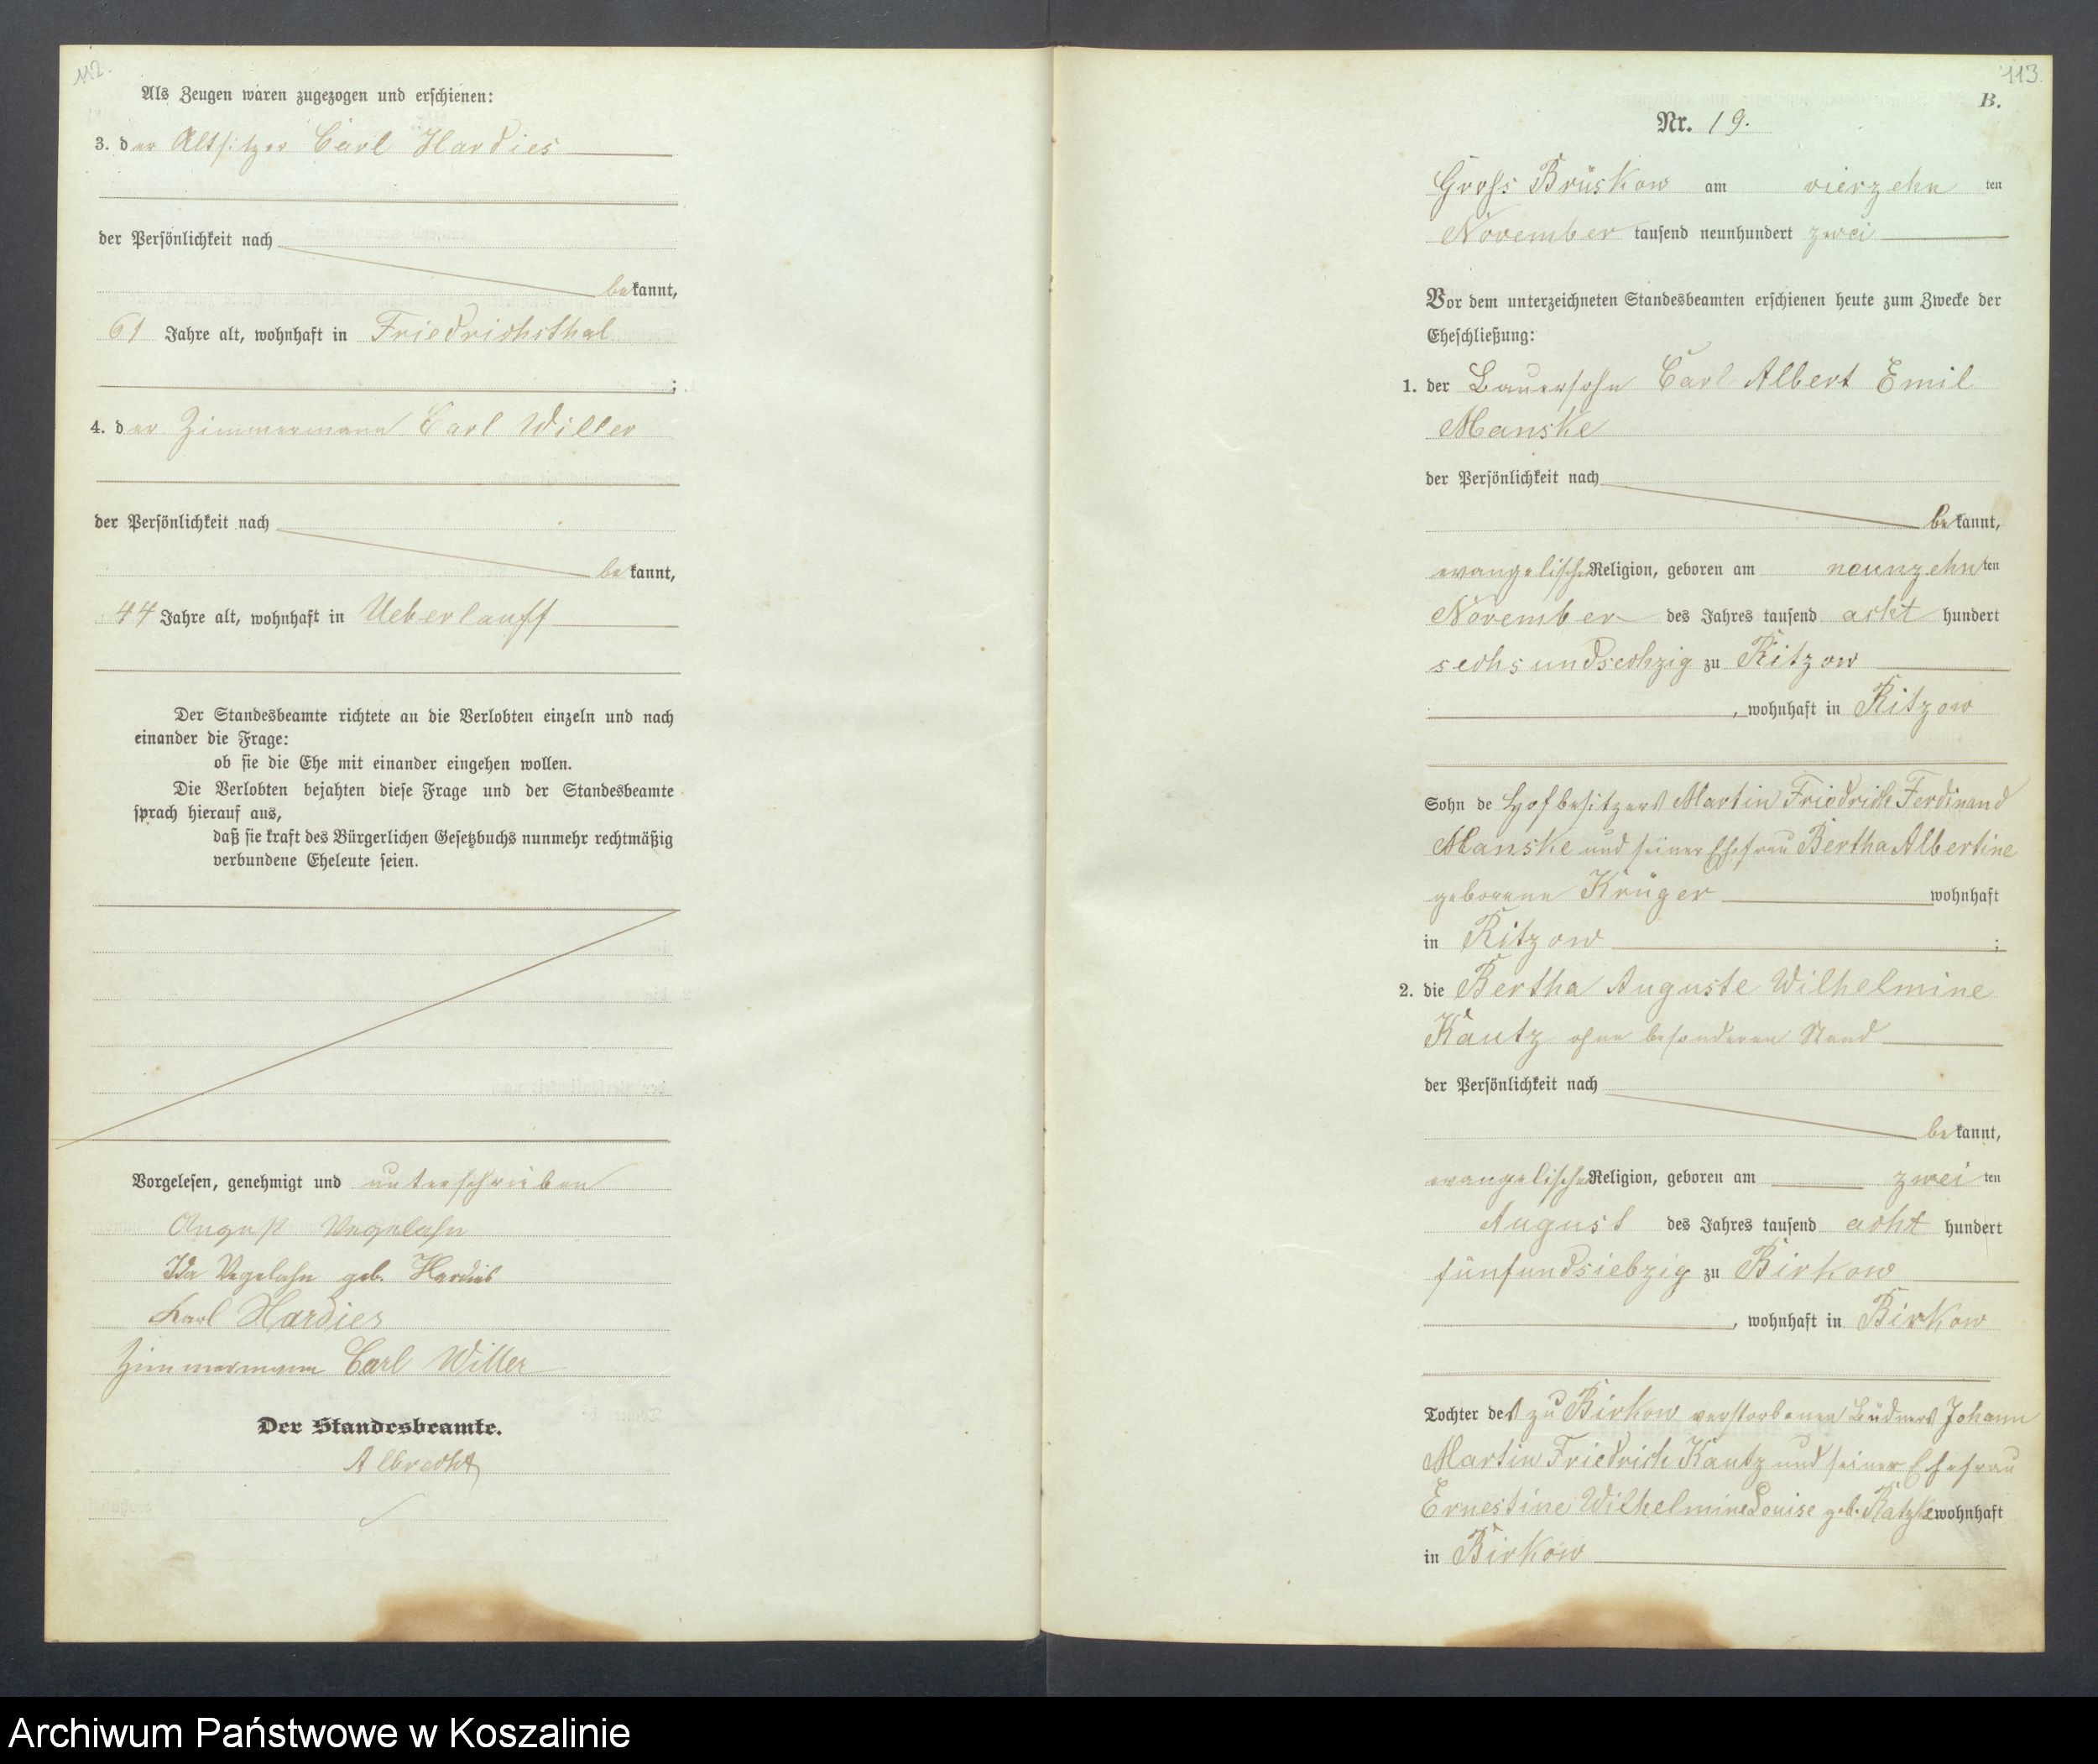 112.
Als Zeugen waren zugezogen und erschienen:
3. der Altsitzer Carl Hardies
der Persönlichkeit nach
bekannt,
61 Jahre alt, wohnhaft in Friedrichsthal
;
4. der Zimmermann Carl Willer
der Persönlichkeit nach
bekannt,
44 Jahre alt, wohnhaft in Ueberlauff
Der Standesbeamte richtete an die Verlobten einzeln und nach
einander die Frage:
ob sie die Ehe mit einander eingehen wollen.
Die Verlobten bejahten diese Frage und der Standesbeamte
sprach hierauf aus,
daß sie kraft des Bürgerlichen Gesetzbuchs nunmehr rechtmäßig
verbundene Eheleute seien.
Vorgelesen, genehmigt und unterschrieben
August Vegelahn
Ida Vegelahn geb. Hardies
Karl Hardies
Zimmermann Carl Willer
Der Standesbeamte.
Albrecht
113.
B.
Nr. 19.
Gross Brüskow am vierzehn ten
November tausend neunhundert zwei
Vor dem unterzeichneten Standesbeamten erschienen heute zum Zwecke der
Eheschließung:
1. der Bauersohn Carl Albert Emil
Manske
der Persönlichkeit nach
bekannt,
evangelischer Religion, geboren am neunzehn ten
November des Jahres tausend acht hundert
sechsundsechzig zu Ritzow
, wohnhaft in Ritzow
Sohn des Hofbesitzers Martin Friedrich Ferdinand
Manske und seiner Ehefrau Bertha Albertine
geborene Krüger wohnhaft
in Ritzow ;
2. die Bertha Auguste Wilhelmine
Kautz ohne besonderen Stand
der Persönlichkeit nach
bekannt,
evangelischer Religion, geboren am zwei ten
August des Jahres tausend acht hundert
fünfundsiebzig zu Birkow
, wohnhaft in Birkow
Tochter des zu Birkow verstorbenen Büdners Johann
Martin Friedrich Kautz und seiner Ehefrau
Ernestine Wilhelmine Louise geb. Ratzke wohnhaft
in Birkow
Archiwum Państwowe w Koszalinie